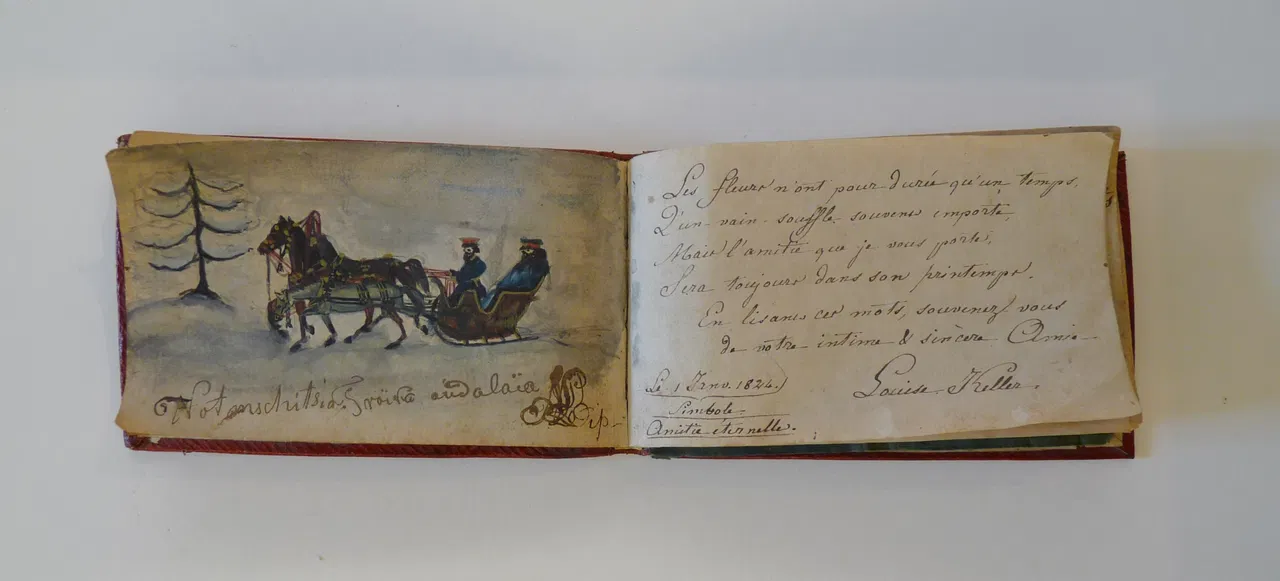 Wotenschitsia Troïka oudalaïa
Les fleurs n'ont pour durée qu'un temps,
Qu'un vain souffle souvent emporte,
Mais l'amitié que je vous porte,
Sera toujours dans son printemps.
En lisant ces mots, souvenez vous
de votre intime & sincère Amie
Louise Keller.
Le 1 Janv. 1824.
Simbole
Amitié éternelle.